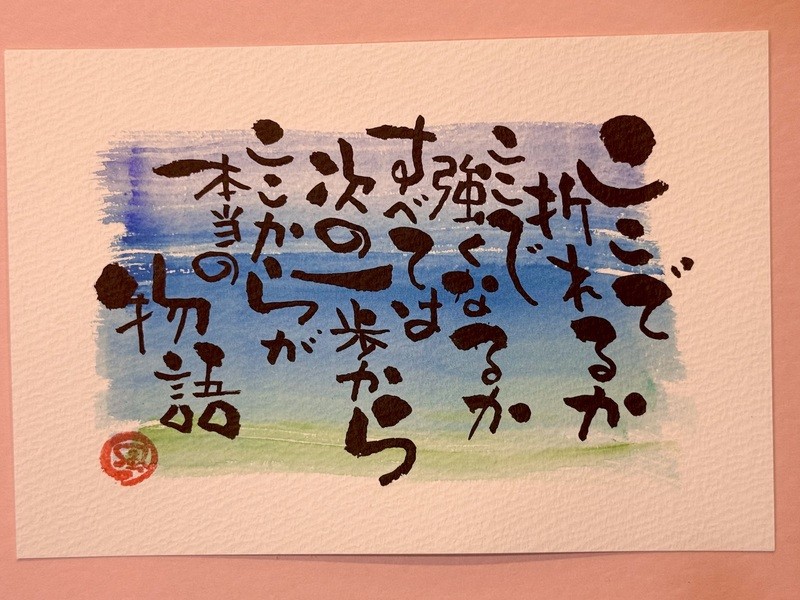 ここで
折れるか
ここで
強くなるか
すべては
次の一歩から
ここからが
本当の
物語